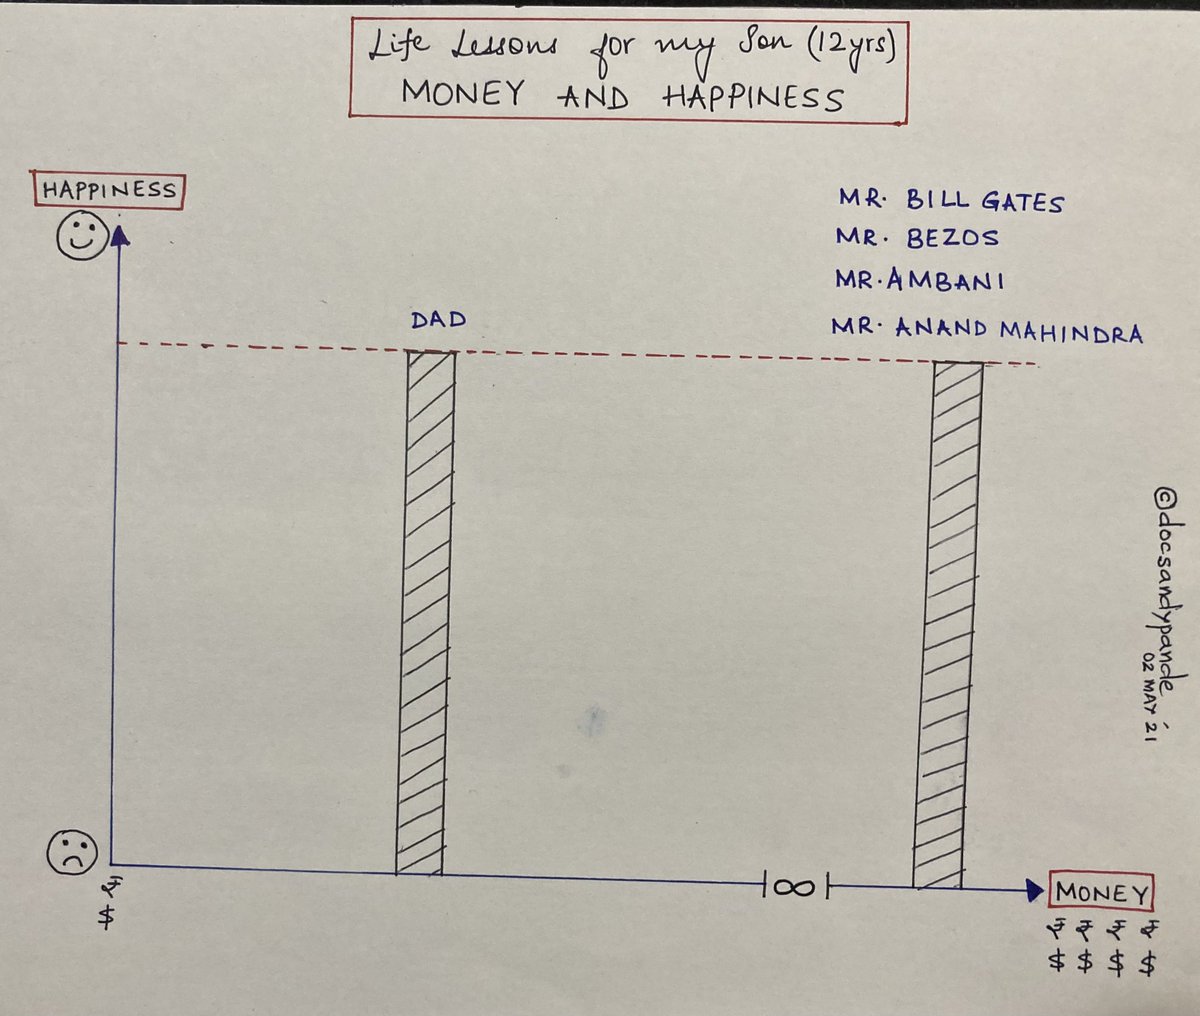 Life Lessons for my Son (12yrs)
MONEY AND HAPPINESS
HAPPINESS
MR. BILL GATES
MR. BEZOS
MR. AMBANI
MR. ANAND MAHINDRA
DAD
©docsandypande
02 MAY '21
∞
MONEY
₹
$
₹ ₹ ₹ ₹
$ $ $ $